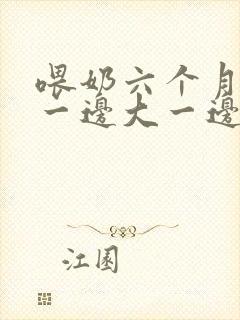 喂奶六个月
一邊大一邊
江園